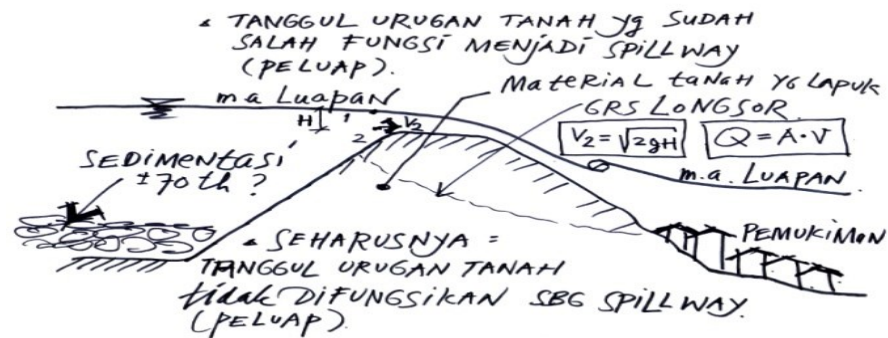 • TANGGUL URUGAN TANAH yg SUDAH
SALAH FUNGSI MENJADI SPILLWAY
(PELUAP).
m.a Luapan
Material tanah YG LAPUK
GRS LONGSOR
H
1
2
V2
V2 = √2gH
Q = A·V
SEDIMENTASI
±70 th ?
m.a. LUAPAN
PEMUKIMAN
• SEHARUSNYA =
TANGGUL URUGAN TANAH
tidak DIFUNGSIKAN SBG SPILLWAY.
(PELUAP).